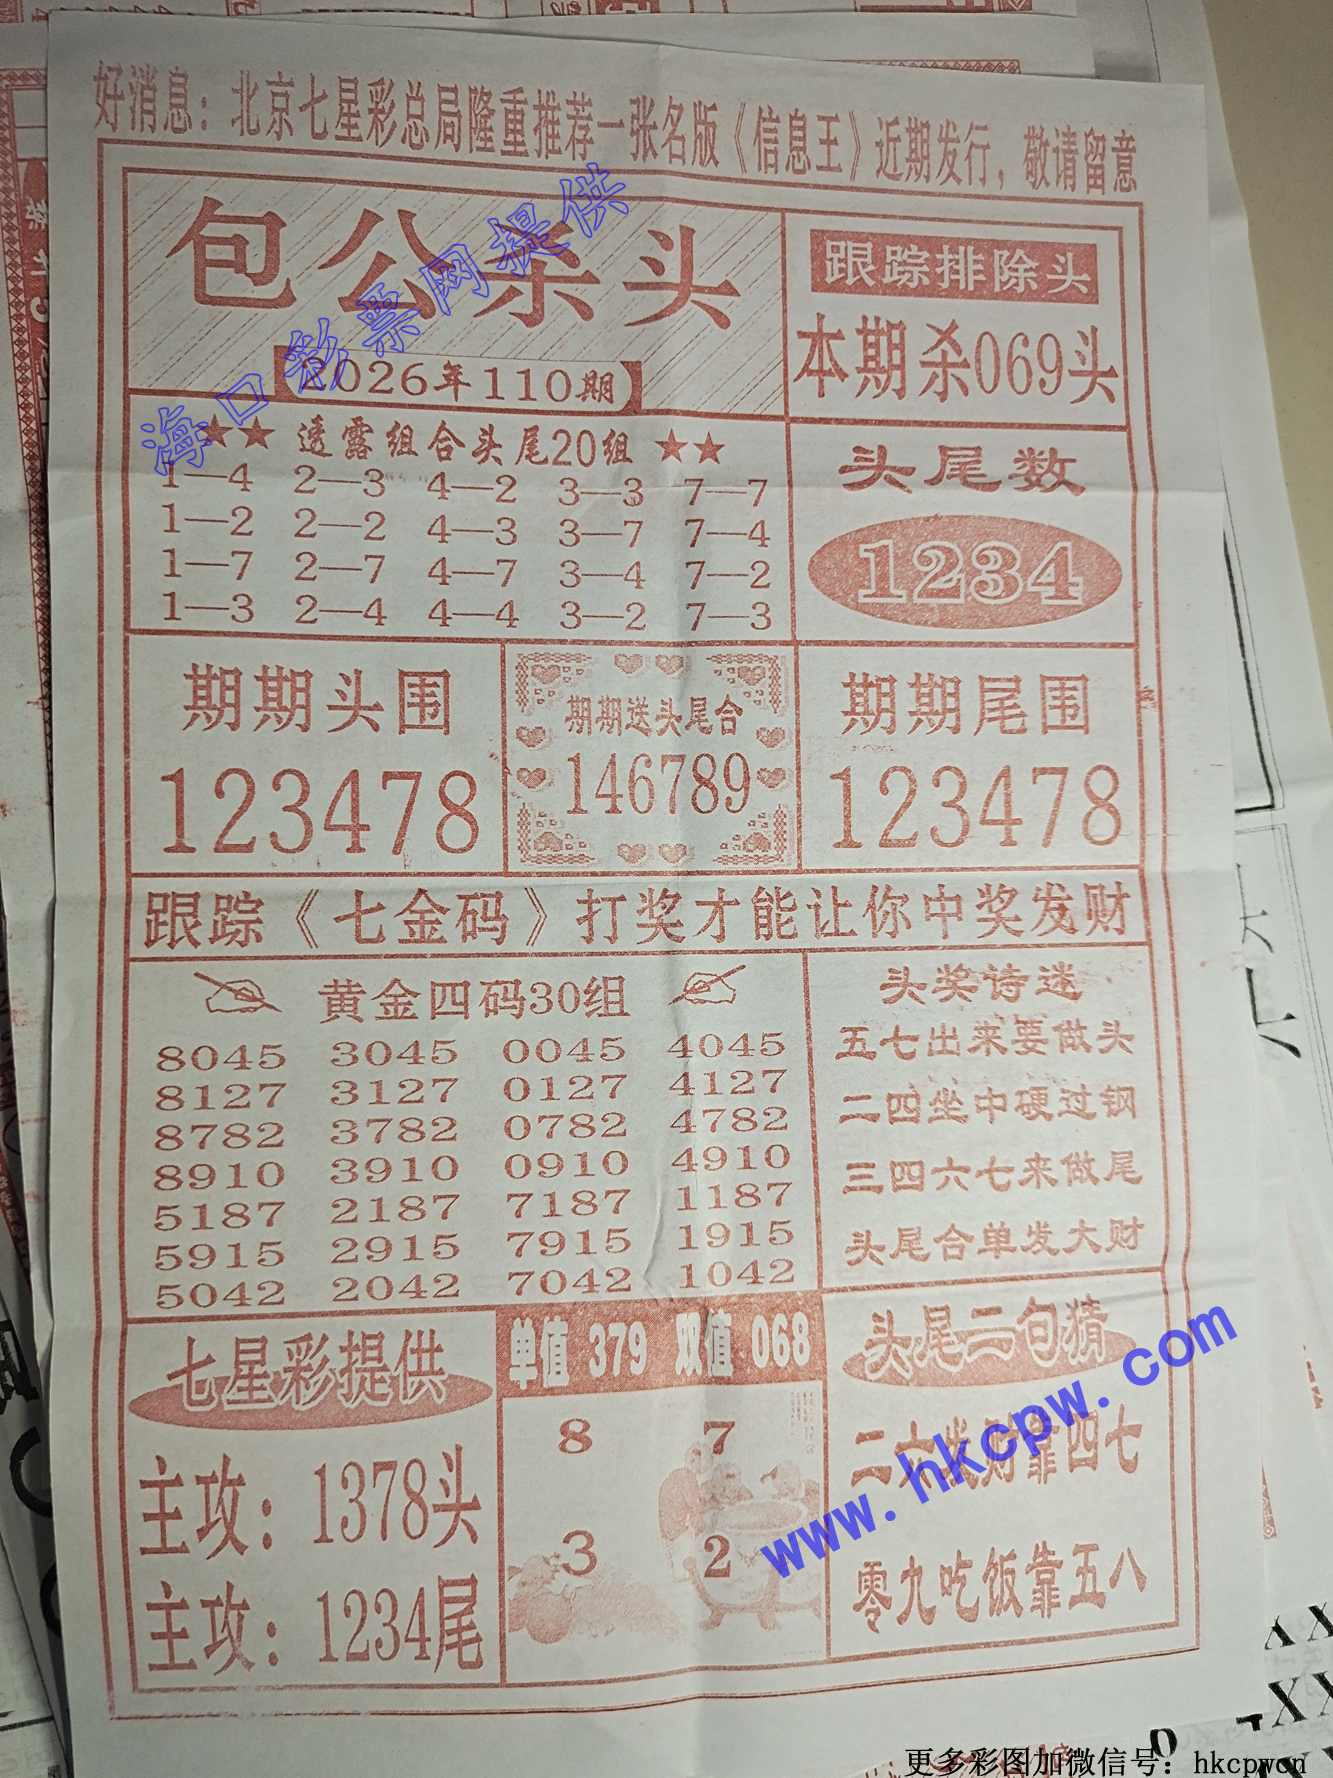 好消息：北京七星彩总局隆重推荐一张名版《信息王》近期发行，敬请留意
包公杀头
2026年110期
跟踪排除头
本期杀069头
★★ 透露组合头尾20组 ★★
1—4 2—3 4—2 3—3 7—7
1—2 2—2 4—3 3—7 7—4
1—7 2—7 4—7 3—4 7—2
1—3 2—4 4—4 3—2 7—3
头尾数
1234
期期头围
123478
期期送头尾合
146789
期期尾围
123478
跟踪《七金码》打奖才能让你中奖发财
黄金四码30组
8045 3045 0045 4045
8127 3127 0127 4127
8782 3782 0782 4782
8910 3910 0910 4910
5187 2187 7187 1187
5915 2915 7915 1915
5042 2042 7042 1042
头奖诗迷
五七出来要做头
二四坐中硬过钢
三四六七来做尾
头尾合单发大财
七星彩提供
主攻：1378头
主攻：1234尾
单值 379 双值 068
8 7
3 2
头尾二句猜
二六发财靠四七
零九吃饭靠五八
海口彩票网提供
www.hkcpw.com
更多彩图加微信号：hkcpwcn